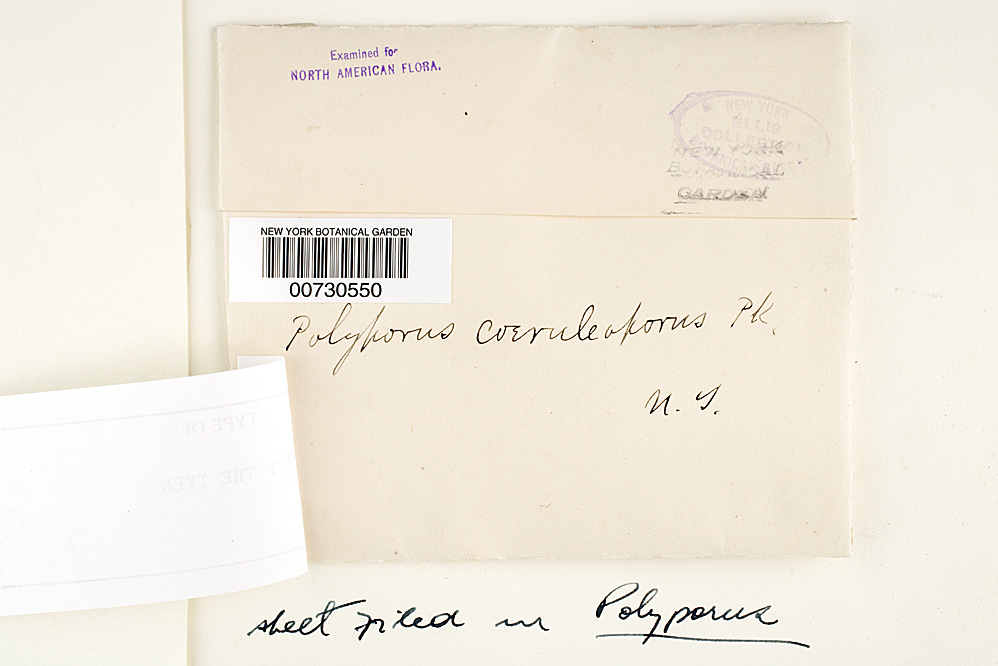 Examined for
NORTH AMERICAN FLORA.
NEW YORK
ELLIS
COLLECTION
NEW YORK
BOTANICAL
GARDEN
NEW YORK BOTANICAL GARDEN
00730550
Polyporus coeruleoporus Pk.
N. Y.
TYPE OF
NOT THE TYPE
sheet filed in Polyporus